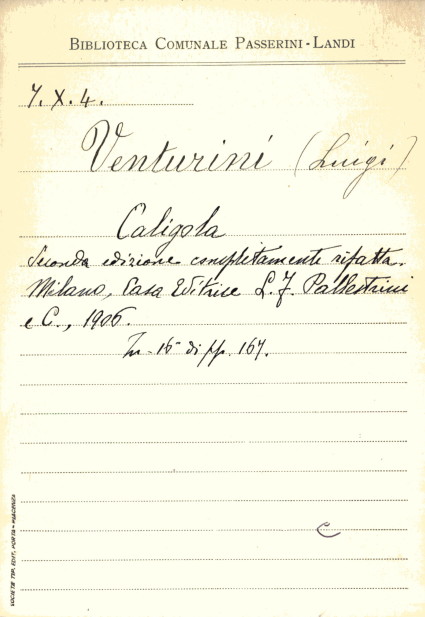 BIBLIOTECA COMUNALE PASSERINI-LANDI
7. X. 4.
Venturini (Luigi)
Caligola
Seconda edizione completamente rifatta.
Milano, Casa Editrice L. F. Pallestrini
e C., 1906.
In-16° di pp. 167.
C
SOCIETÀ TIP. EDIT. PORTA - PIACENZA